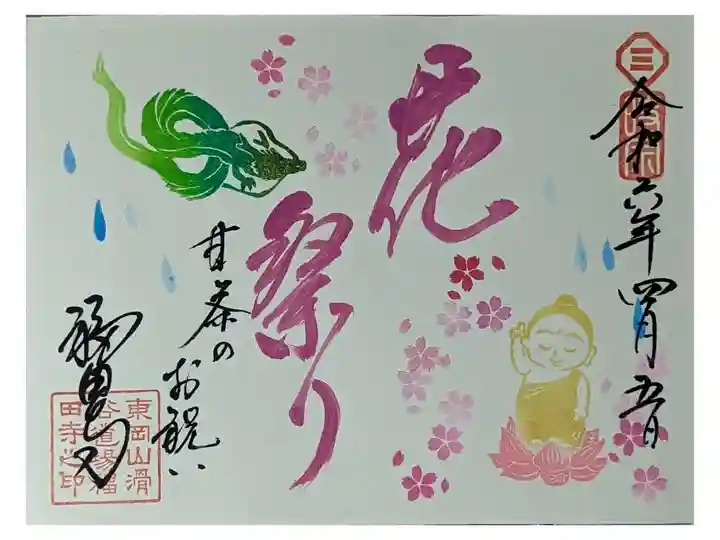 令和六年四月五日
花
祭り
甘茶の
お祝い
福田寺
東岡山滑
谷道場福
田寺之印